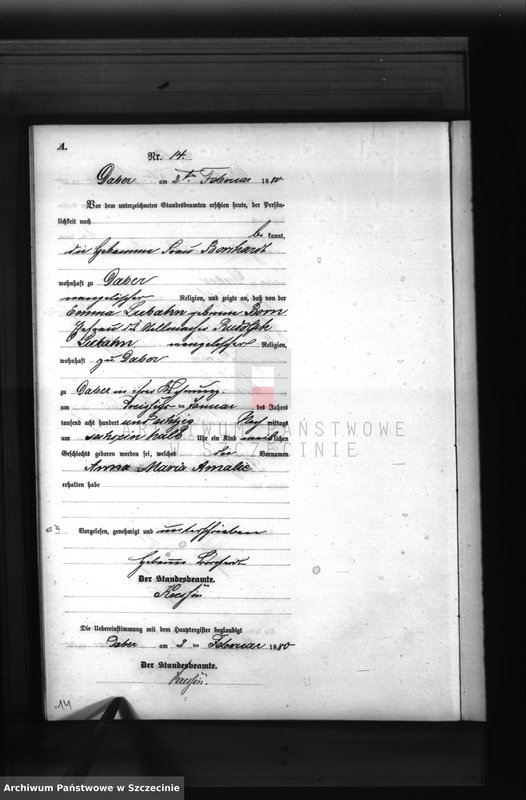 A.
Nr. 14.
Daber am 2ten Februar 1880
Vor dem unterzeichneten Standesbeamten erschien heute, der Persön-
lichkeit nach
be kannt,
die Hebamme Frau Borchardt
wohnhaft zu Daber
evangelischer Religion, und zeigte an, daß von der
Emma Lubahn geborene Born
Ehefrau des Rudolph
Lubahn evangelischer Religion,
wohnhaft zu Daber
zu Daber in ihrer Wohnung
am Januar des Jahrs
tausend acht hundert und achtzig Nach mittags
um halb Uhr ein Kind weiblichen
Geschlechts geboren worden sei, welches die Vornamen
Anna Maria Amalie
erhalten habe
Vorgelesen, genehmigt und unterschrieben
Hebamme Borchardt
Der Standesbeamte.
Die Uebereinstimmung mit dem Hauptregister beglaubigt
Daber am 2 ten Februar 1880
Der Standesbeamte.
14
ARCHIWUM PAŃSTWOWE
W SZCZECINIE
Archiwum Państwowe w Szczecinie